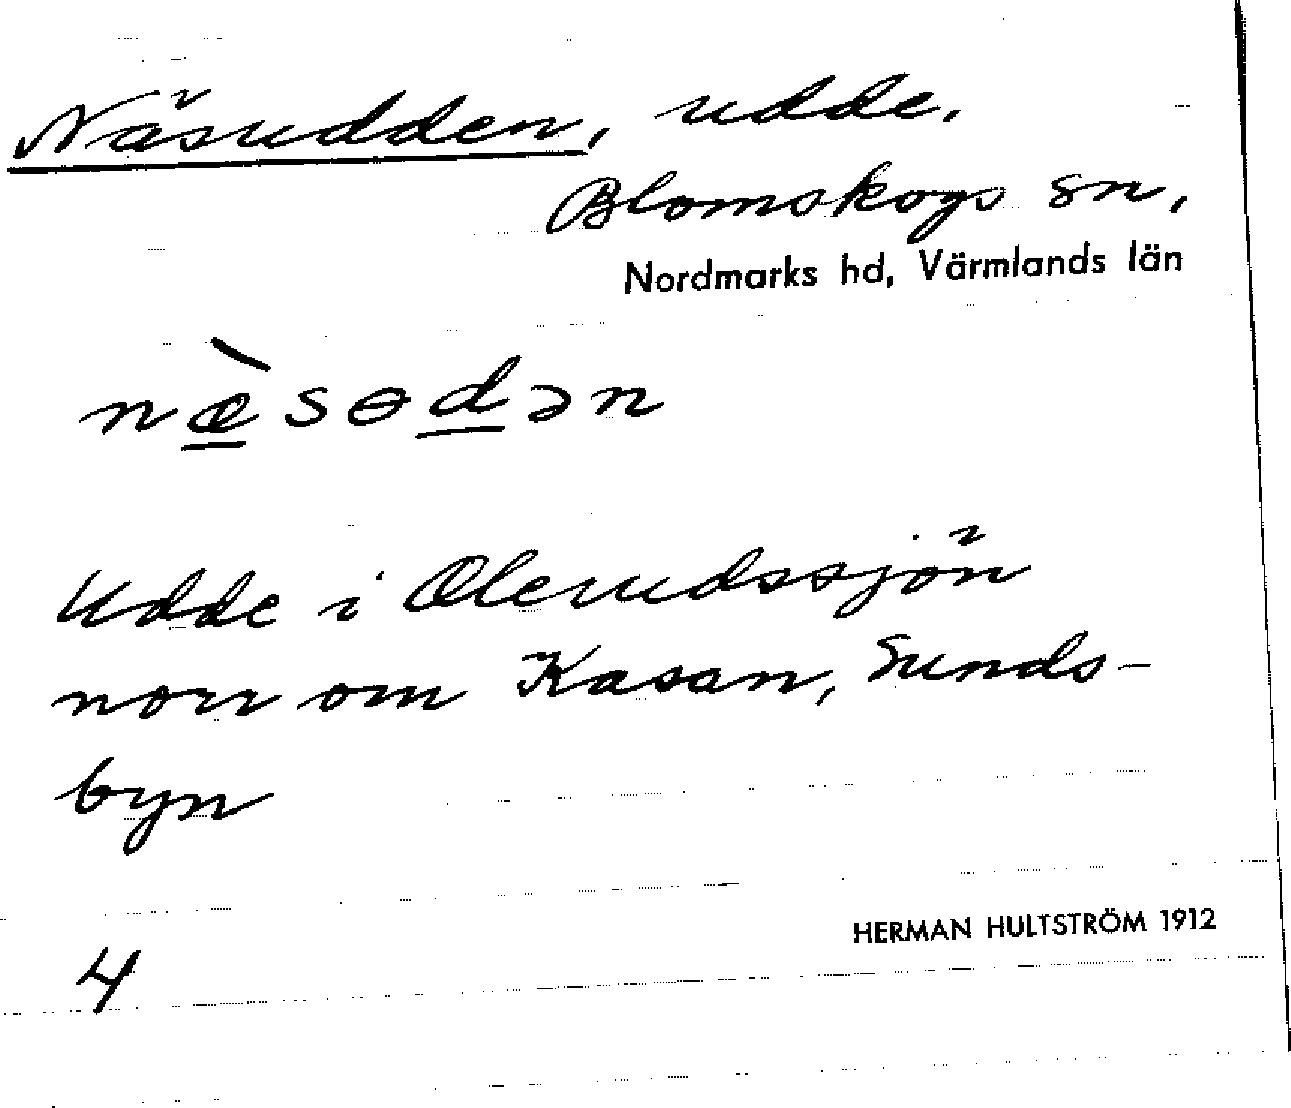 Näsudden, udde.
Blomskogs sn,
Nordmarks hd, Värmlands län
næ̀sɵdən
Udde i Olerudssjön
norr om Kasan, Sunds-
byn
HERMAN HULTSTRÖM 1912
4